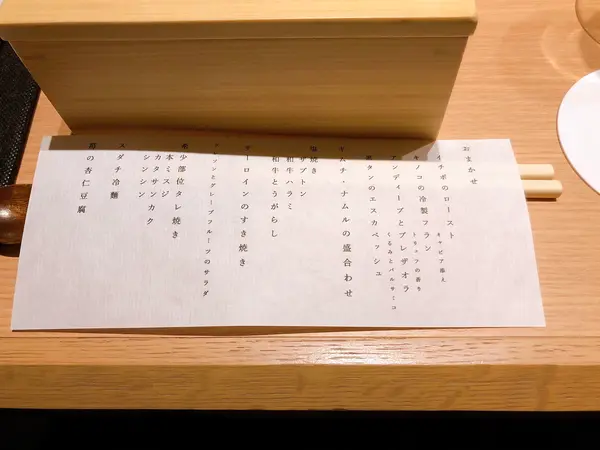 おまかせ
イチボのロースト
キャビア添え
キノコの冷製フラン
トリュフの香り
アンディーブとブレザオラ
くるみとバルサミコ
タンのエスカベッシュ
キムチ・ナムルの盛合わせ
塩焼き
ザブトン
和牛ハラミ
和牛とうがらし
サーロインのすき焼き
クレソンとグレープフルーツのサラダ
希少部位タレ焼き
本ミスジ
カタサンカク
シンシン
スダチ冷麺
の杏仁豆腐